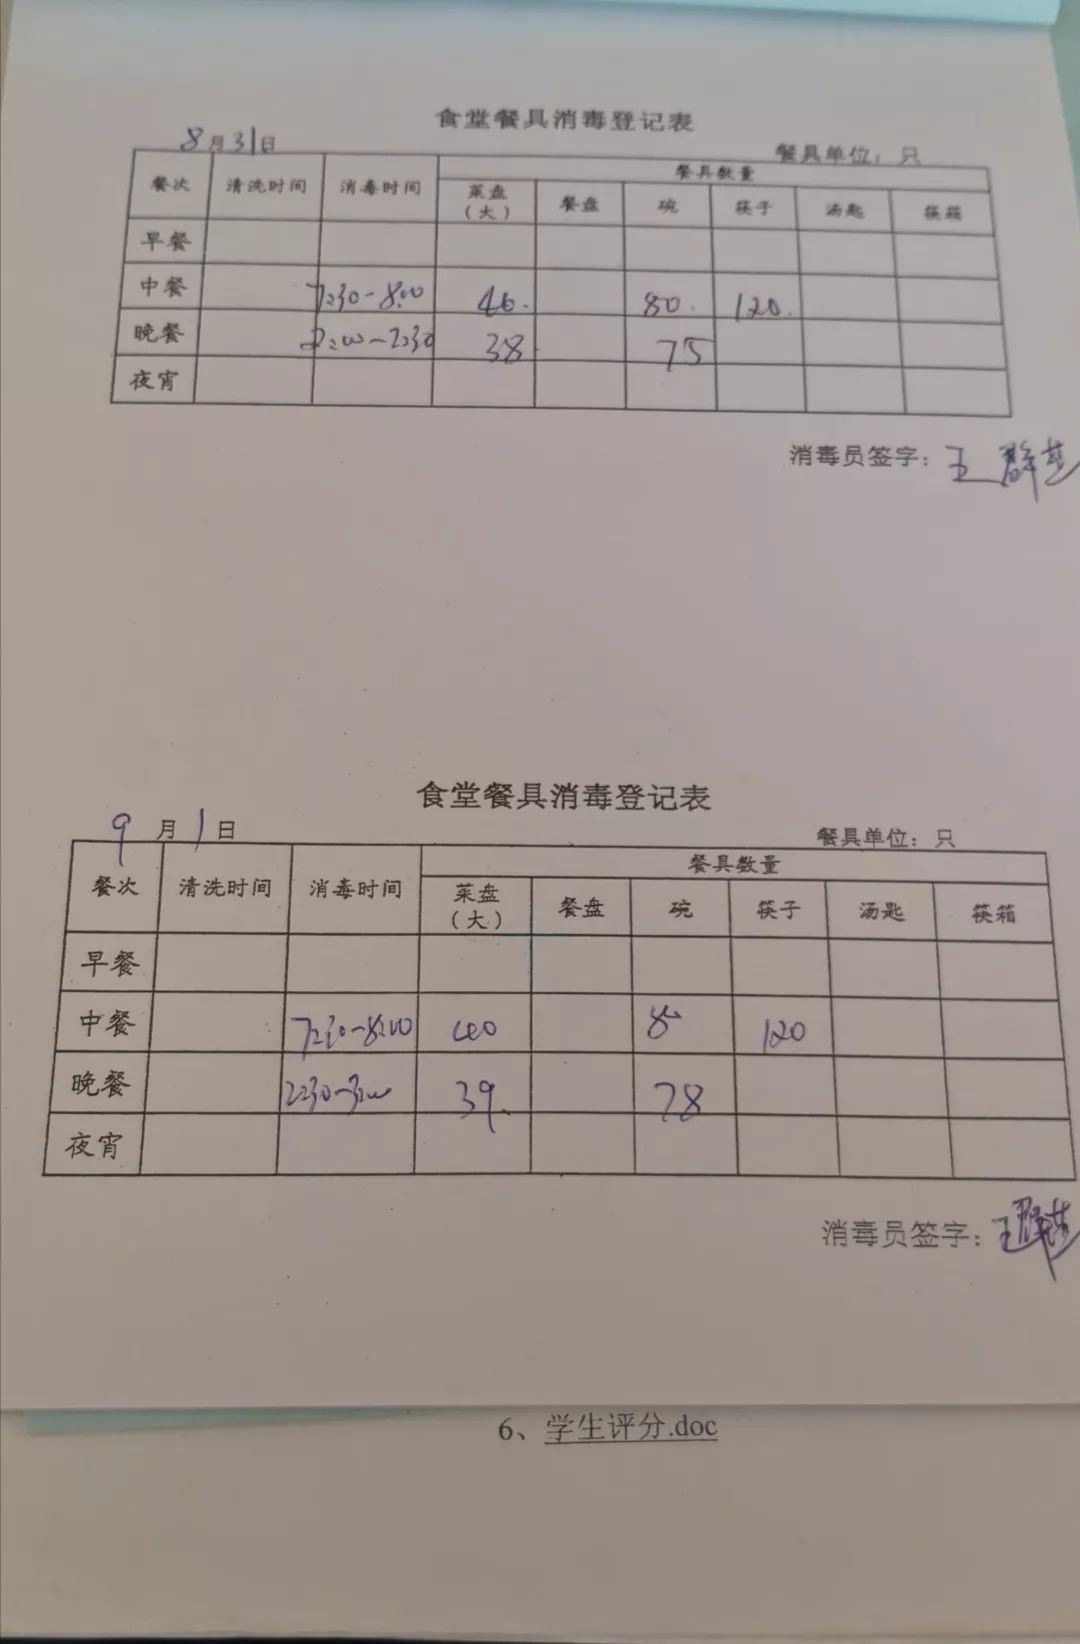 食堂餐具消毒登记表
8月31日 餐具单位：只
餐次 清洗时间 消毒时间 餐具数量
菜盘（大） 餐盘 碗 筷子 汤匙 筷箱
早餐
中餐 7:30-8:00 46. 80. 120.
晚餐 2:00-2:30 38 75
夜宵
消毒员签字：王群
食堂餐具消毒登记表
9月1日 餐具单位：只
餐次 清洗时间 消毒时间 餐具数量
菜盘（大） 餐盘 碗 筷子 汤匙 筷箱
早餐
中餐 7:30-8:00 40 80 120
晚餐 2:30-3:00 39 78
夜宵
消毒员签字：王群
6、学生评分.doc